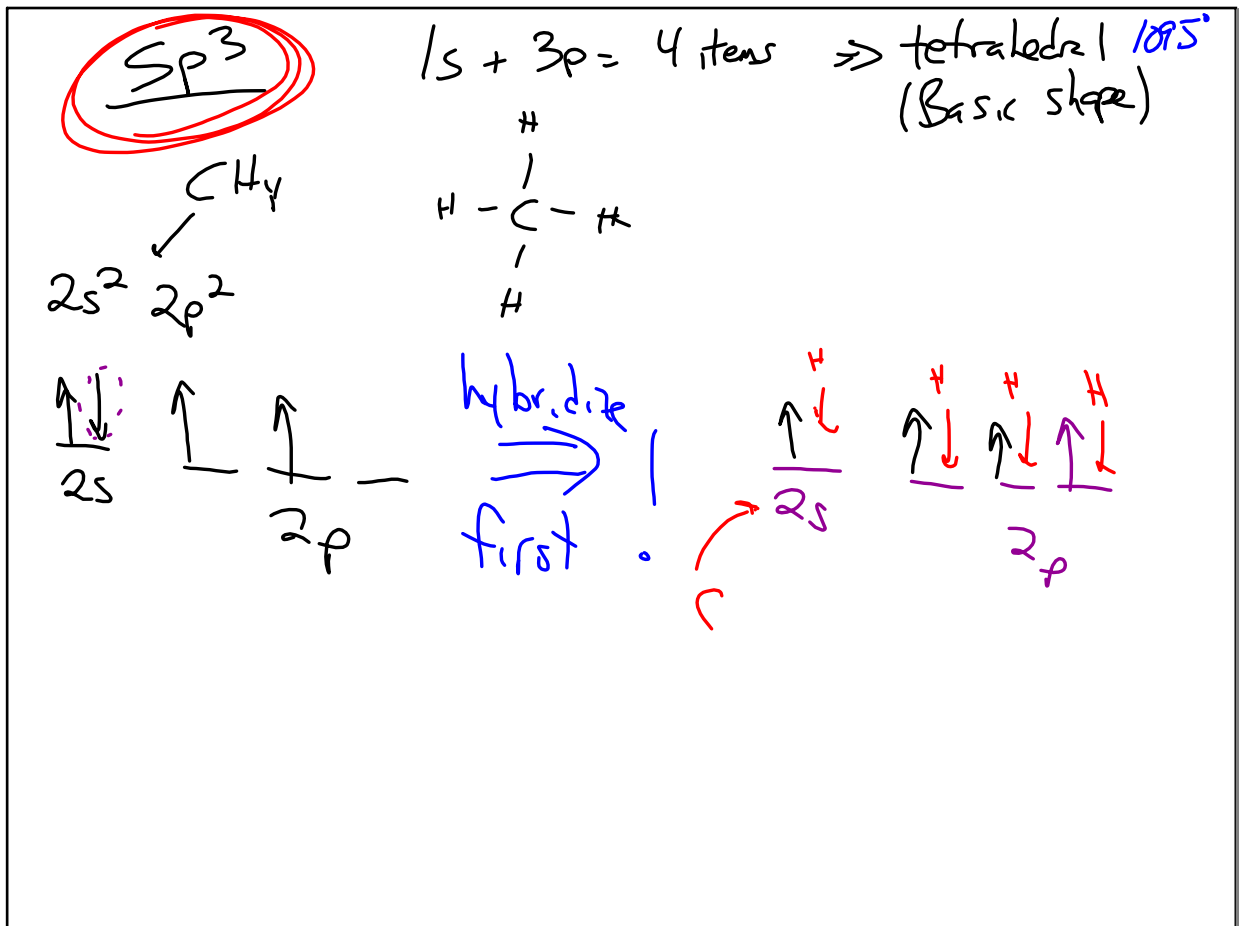 sp³ 1s + 3p = 4 items ⇒ tetrahedral 109.5°
(Basic shape)
CH₄
H
H - C - H
H
2s² 2p²
hybridize
first !
H H H H
2s 2p
2s 2p
C